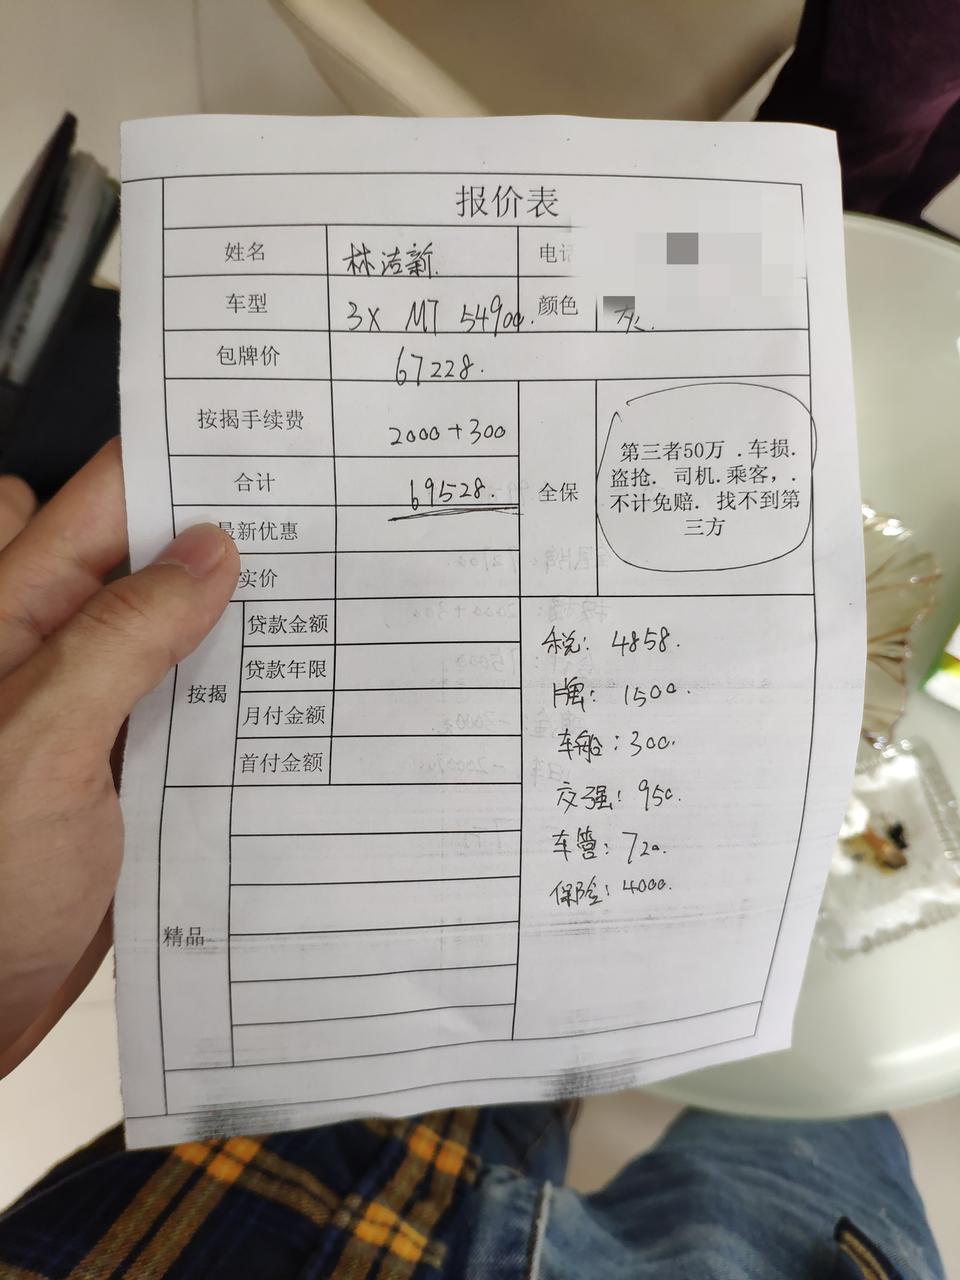 报价表
姓名 林洁新. 电话
车型 3X MT 54900. 颜色 灰.
包牌价 67228.
按揭手续费 2000+300
合计 69528.
全保
第三者50万 .车损.
盗抢. 司机. 乘客, .
不计免赔. 找不到第
三方
最新优惠
实价
按揭
贷款金额
贷款年限
月付金额
首付金额
税: 4858.
牌: 1500.
车船: 300.
交强: 950.
车管: 720.
保险: 4000.
精品